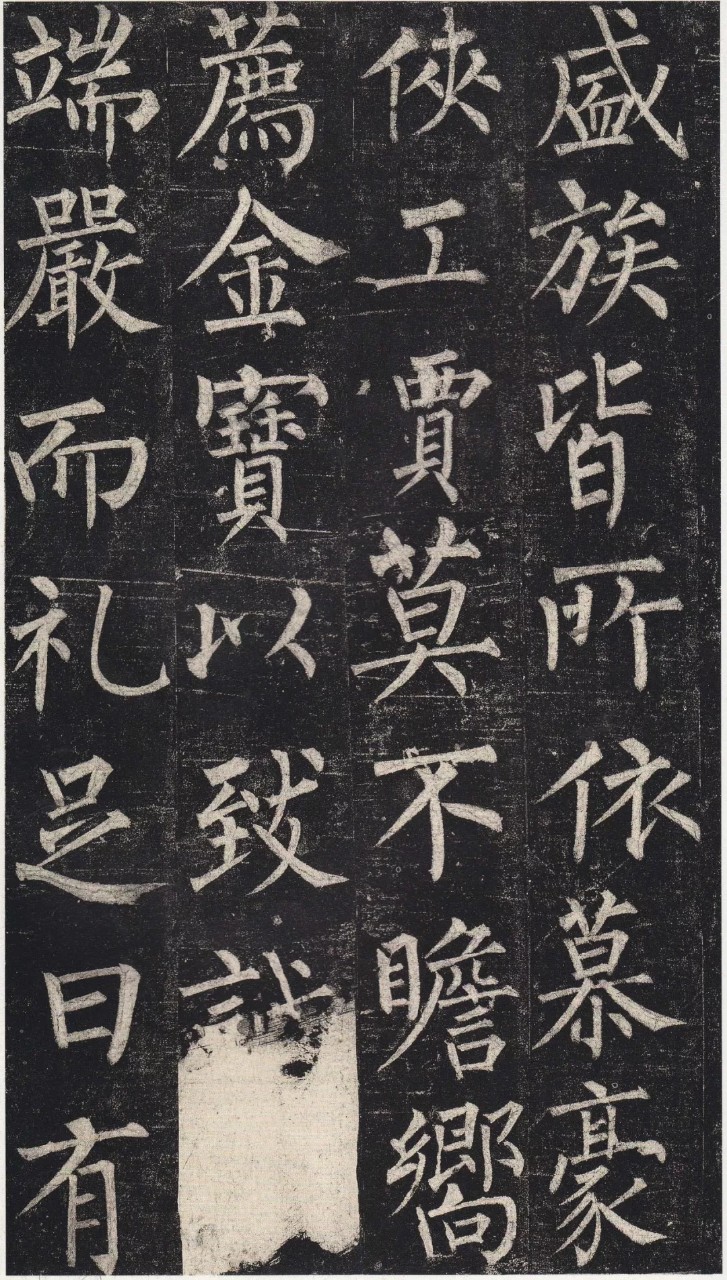 盛族皆所依慕豪
俠工賈莫不瞻嚮
薦金寶以致誠
端嚴而礼足日有